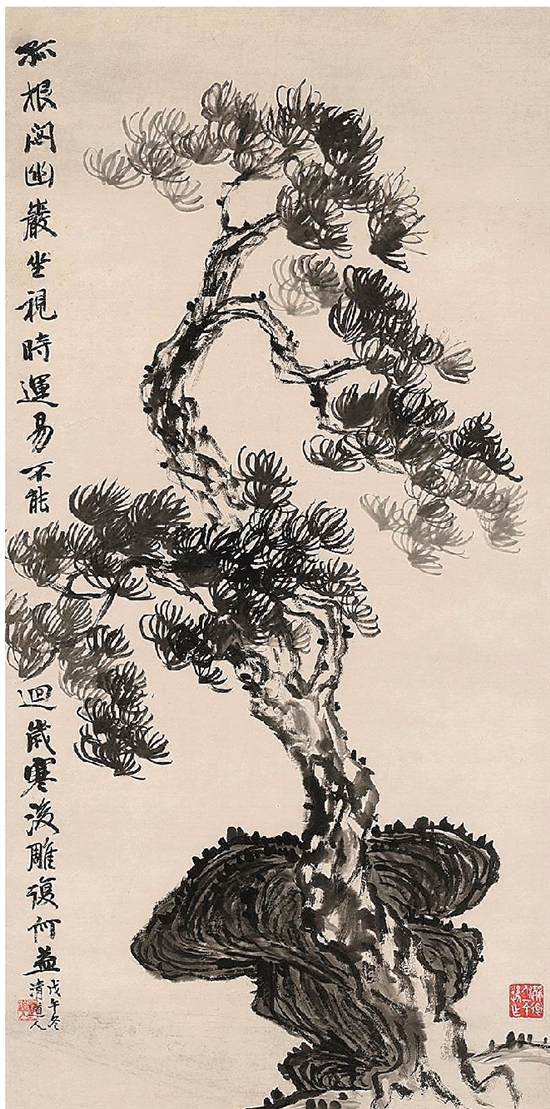 孤根閟幽巖坐視時運易不能迴歲寒後雕復何益
戊午冬
清道人